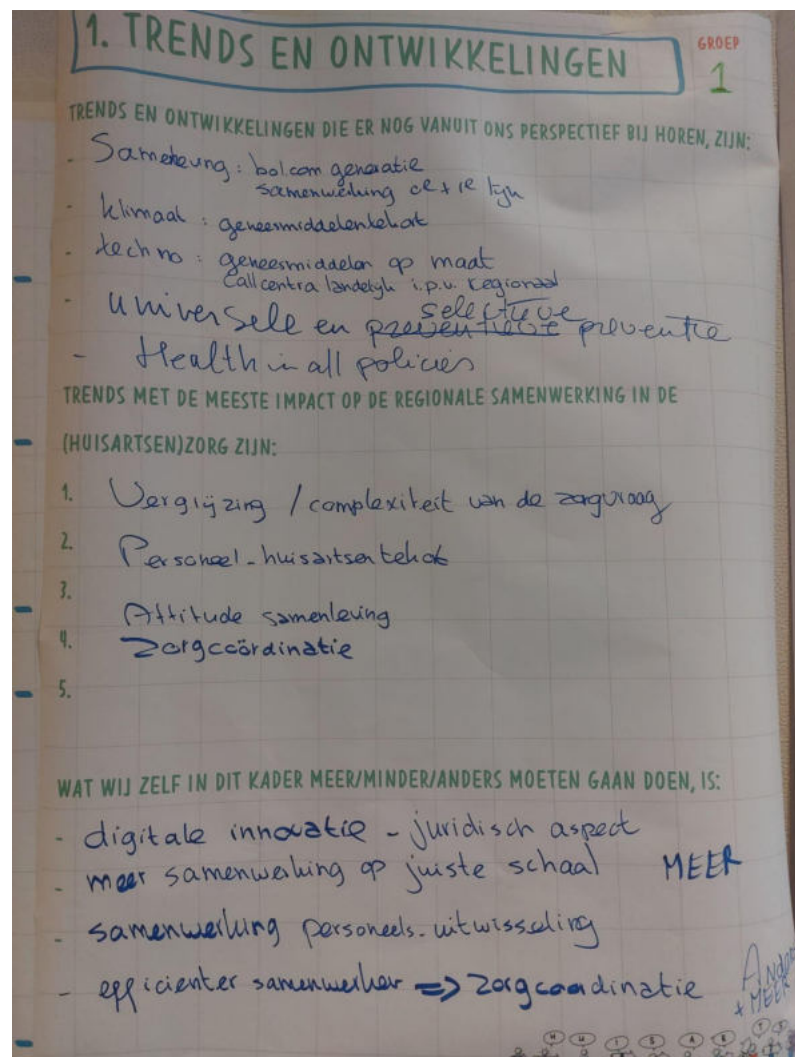 1. TRENDS EN ONTWIKKELINGEN
GROEP
1
TRENDS EN ONTWIKKELINGEN DIE ER NOG VANUIT ONS PERSPECTIEF BIJ HOREN, ZIJN:
- Samenleving: bol.com generatie
samenwerking 0e + 1e lijn
- klimaat: geneesmiddelentekort
- techno: geneesmiddelen op maat
Callcentra landelijk i.p.v. regionaal
selectieve
- universele en preventieve preventie
- Health in all policies
TRENDS MET DE MEESTE IMPACT OP DE REGIONALE SAMENWERKING IN DE
(HUISARTSEN)ZORG ZIJN:
1. Vergrijzing / complexiteit van de zorgvraag
2. Personeel - huisartsentekort
3.
Attitude samenleving
4. Zorgcoördinatie
5.
WAT WIJ ZELF IN DIT KADER MEER/MINDER/ANDERS MOETEN GAAN DOEN, IS:
- digitale innovatie - juridisch aspect
- meer samenwerking op juiste schaal MEER
- samenwerking personeels-uitwisseling
- efficienter samenwerken => zorgcoordinatie
Anders
+ MEER
H U I S A